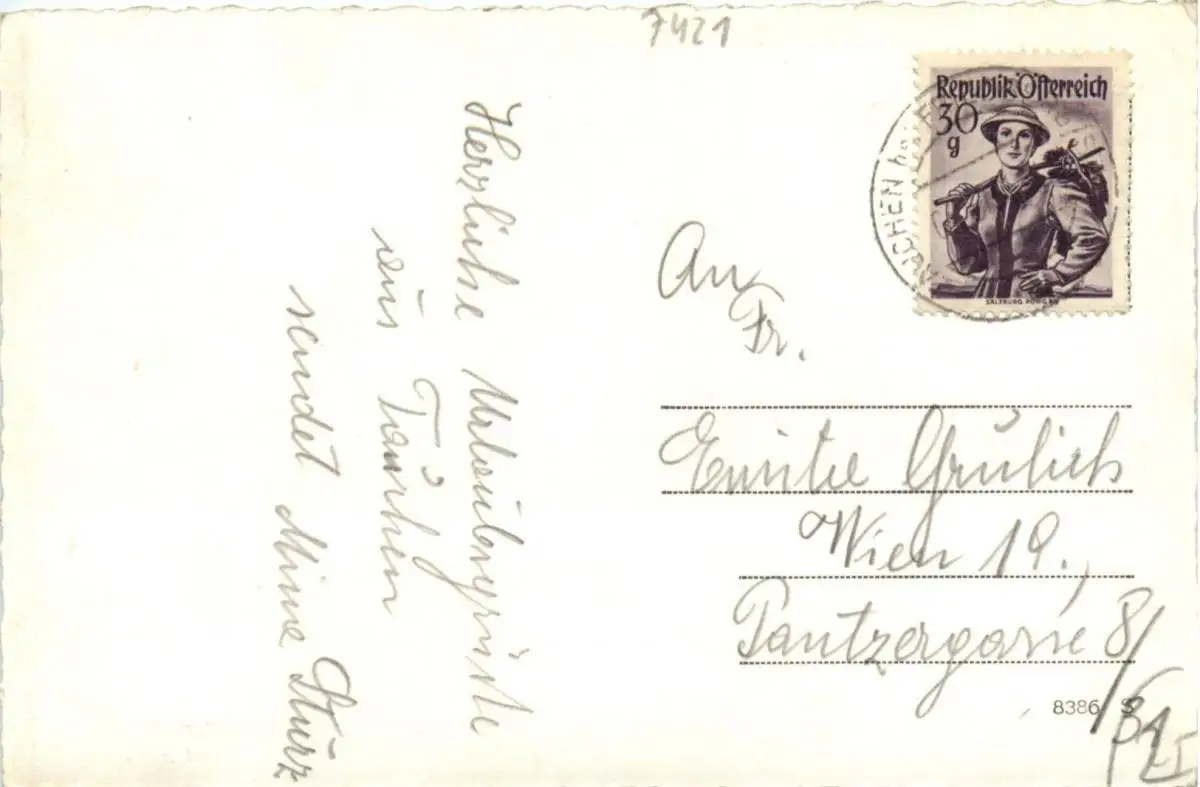 7421
Republik Österreich
30
g
SALZBURG PONGAU
Herzliche Urlaubsgrüße
aus Tauchen
sendet Minna Sturz
An
Fr.
Emilie Grülich
Wien 19.,
Pantzergasse 8/
8386 S